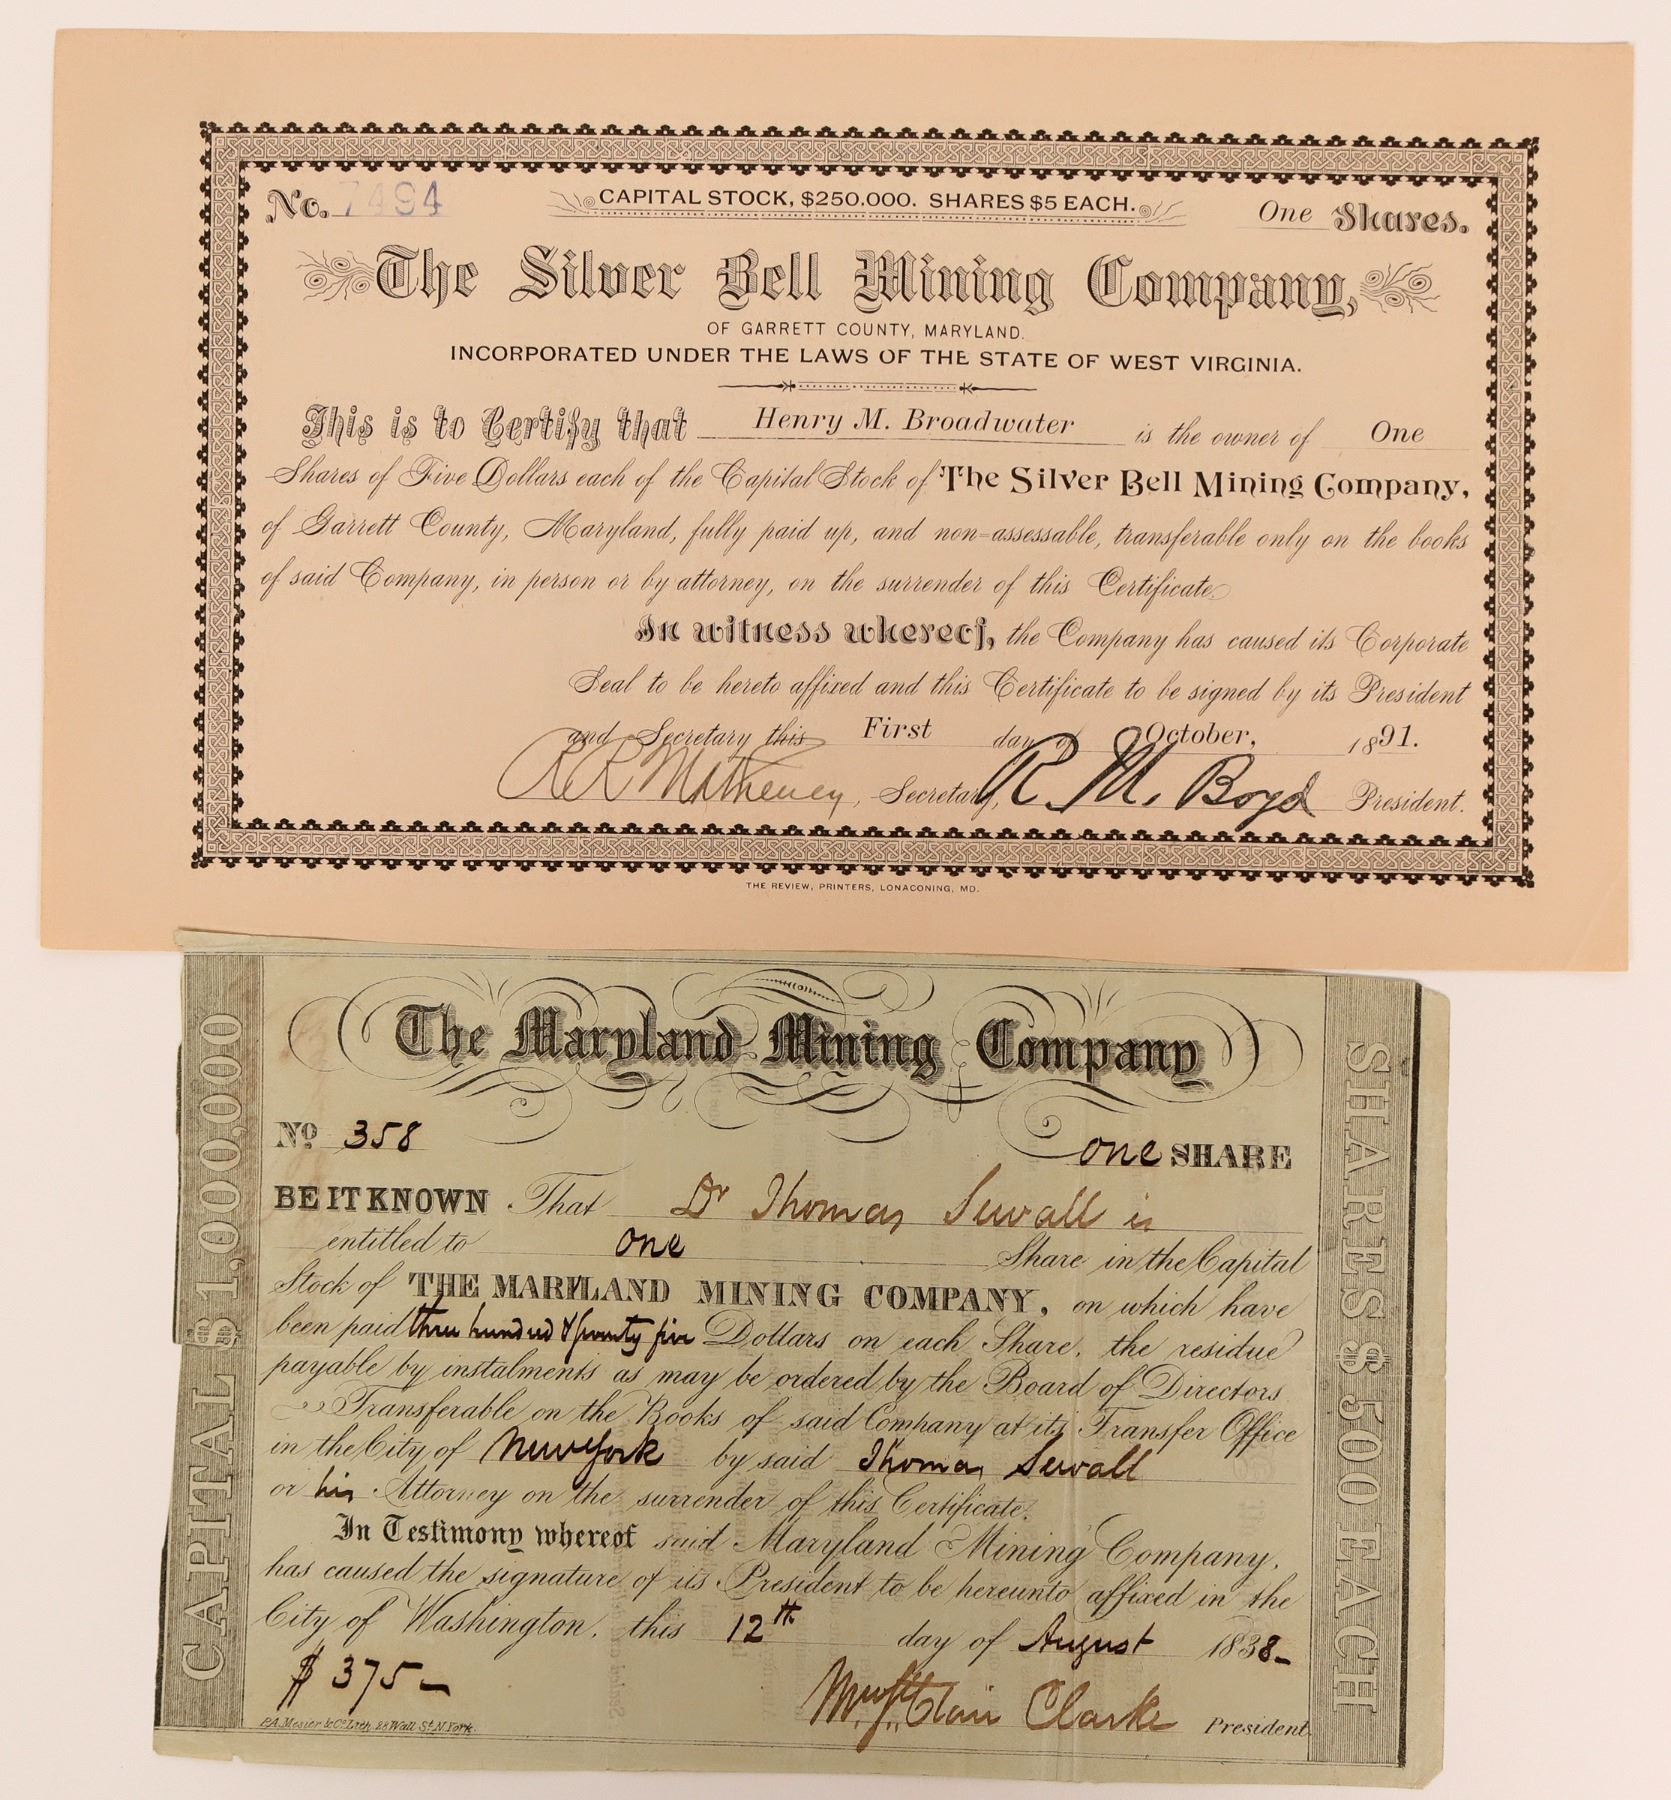 No. 7494
CAPITAL STOCK, $250.000. SHARES $5 EACH.
One Shares.
The Silver Bell Mining Company,
OF GARRETT COUNTY, MARYLAND.
INCORPORATED UNDER THE LAWS OF THE STATE OF WEST VIRGINIA.
This is to Certify that Henry M. Broadwater is the owner of One
Shares of Five Dollars each of the Capital Stock of The Silver Bell Mining Company,
of Garrett County, Maryland, fully paid up, and non=assessable, transferable only on the books
of said Company, in person or by attorney, on the surrender of this Certificate
In witness whereof, the Company has caused its Corporate
Seal to be hereto affixed and this Certificate to be signed by its President
and Secretary this First day of October, 1891.
Secretary, R. M. Boyd President.
THE REVIEW, PRINTERS, LONACONING, MD.
CAPITAL $1,000,000
The Maryland Mining Company
No 358
one SHARE
BE IT KNOWN That Dr Thomas Sewall is
entitled to one Share in the Capital
Stock of THE MARYLAND MINING COMPANY, on which have
been paid three hundred & seventy five Dollars on each Share, the residue
payable by instalments as may be ordered by the Board of Directors
Transferable on the Books of said Company at its Transfer Office
in the City of New York by said Thomas Sewall
or his Attorney on the surrender of this Certificate.
In Testimony whereof said Maryland Mining Company,
has caused the signature of its President to be hereunto affixed in the
City of Washington, this 12th day of August 1838-
$375-
Clair Clarke President
P.A. Mesier & Co Lith. 28 Wall St. N. York.
SHARES $500 EACH